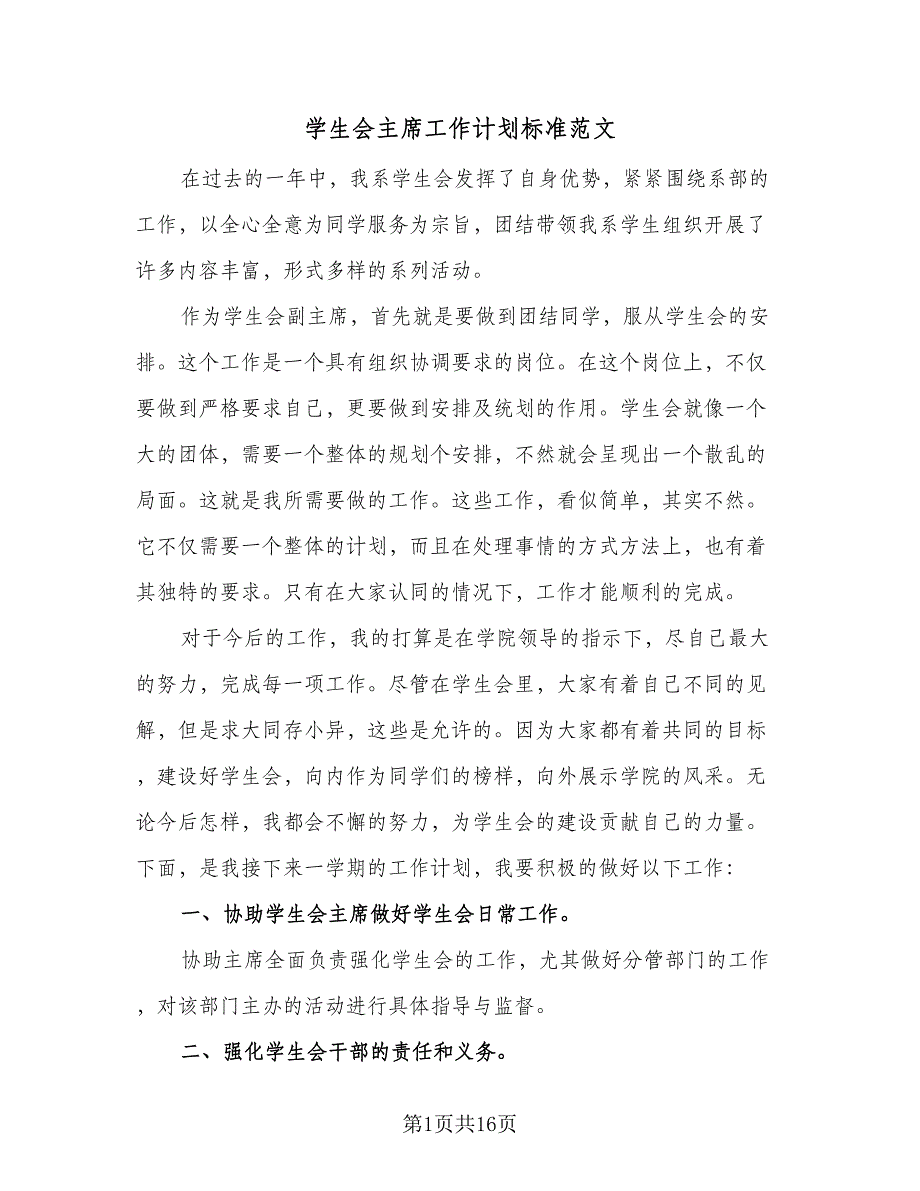 学生会主席工作计划标准范文
在过去的一年中，我系学生会发挥了自身优势，紧紧围绕系部的
工作，以全心全意为同学服务为宗旨，团结带领我系学生组织开展了
许多内容丰富，形式多样的系列活动。
作为学生会副主席，首先就是要做到团结同学，服从学生会的安
排。这个工作是一个具有组织协调要求的岗位。在这个岗位上，不仅
要做到严格要求自己，更要做到安排及统划的作用。学生会就像一个
大的团体，需要一个整体的规划个安排，不然就会呈现出一个散乱的
局面。这就是我所需要做的工作。这些工作，看似简单，其实不然。
它不仅需要一个整体的计划，而且在处理事情的方式方法上，也有着
其独特的要求。只有在大家认同的情况下，工作才能顺利的完成。
对于今后的工作，我的打算是在学院领导的指示下，尽自己最大
的努力，完成每一项工作。尽管在学生会里，大家有着自己不同的见
解，但是求大同存小异，这些是允许的。因为大家都有着共同的目标
，建设好学生会，向内作为同学们的榜样，向外展示学院的风采。无
论今后怎样，我都会不懈的努力，为学生会的建设贡献自己的力量。
下面，是我接下来一学期的工作计划，我要积极的做好以下工作：
一、协助学生会主席做好学生会日常工作。
协助主席全面负责强化学生会的工作，尤其做好分管部门的工作
，对该部门主办的活动进行具体指导与监督。
二、强化学生会干部的责任和义务。
第1页共16页